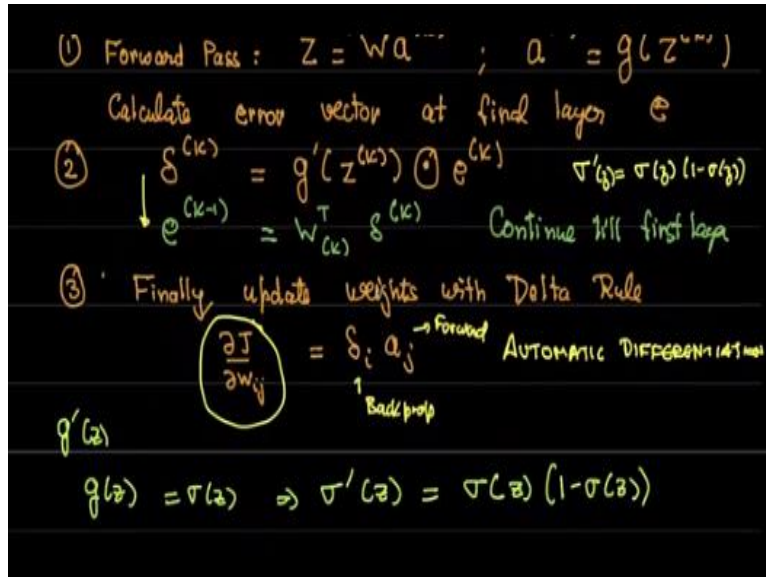 ① Forward Pass : z = Wa ; a = g(z⁽ᴷ⁾)
Calculate error vector at final layer e
② δ⁽ᴷ⁾ = g'(z⁽ᴷ⁾) ⊙ e⁽ᴷ⁾ σ'(z) = σ(z) (1-σ(z))
↓ e⁽ᴷ⁻¹⁾ = Wᵀ₍ₖ₎ δ⁽ᴷ⁾ Continue till first layer
③ Finally update weights with Delta Rule
∂J/∂wᵢⱼ = δᵢ aⱼ → Forward AUTOMATIC DIFFERENTIATION
↑
Backprop
g'(z)
g(z) = σ(z) ⇒ σ'(z) = σ(z) (1-σ(z))